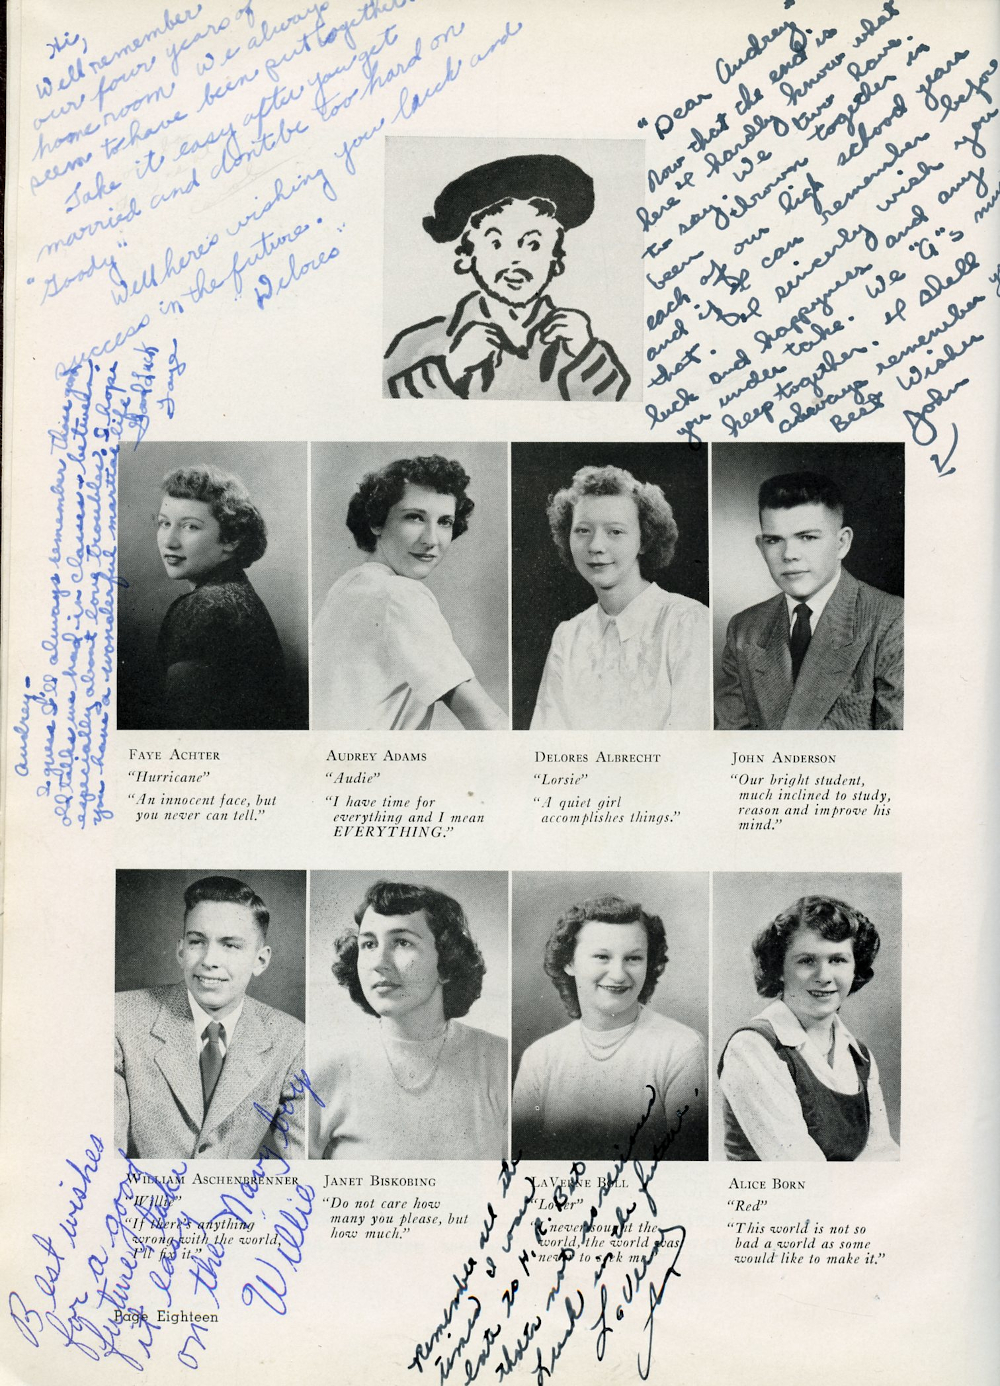 Hi,
Well remember
our four years of
home room. We always
seem to have been put together
Take it easy after you get
married and don't be too hard on
"Goody"
Well here's wishing you luck and
success in the future.
"Delores"
"Dear Audrey"
Now that the end is
here I hardly know what
to say. We two have
been thrown together in
each of our high school years
and if I can remember before
that. I sincerly wish you
luck and happyness and any
you under take. We "A"s must
keep together. I shell
always remember you
Best Wishes
John
Audrey-
I guess I'll always remember those good
old talks we had in classes - between
especially about love troubles. I hope
you have a wonderful marital life!
Good Luck
Faye
Faye Achter
"Hurricane"
"An innocent face, but
you never can tell."
Audrey Adams
"Audie"
"I have time for
everything and I mean
EVERYTHING."
Delores Albrecht
"Lorsie"
"A quiet girl
accomplishes things."
John Anderson
"Our bright student,
much inclined to study,
reason and improve his
mind."
William Aschenbrenner
"Willie"
"If there's anything
wrong with the world,
I'll fix it."
Janet Biskobing
"Do not care how
many you please, but
how much."
LaVerne Boll
"I never sought the
world, the world was
never to seek me."
Alice Born
"Red"
"This world is not so
bad a world as some
would like to make it."
Best wishes
for a good
future, take
it easy
on the Navy boy
Willie
Remember all the
times I was
late to H. R. But
thats not
Luck in the future.
LaVerne
Page Eighteen